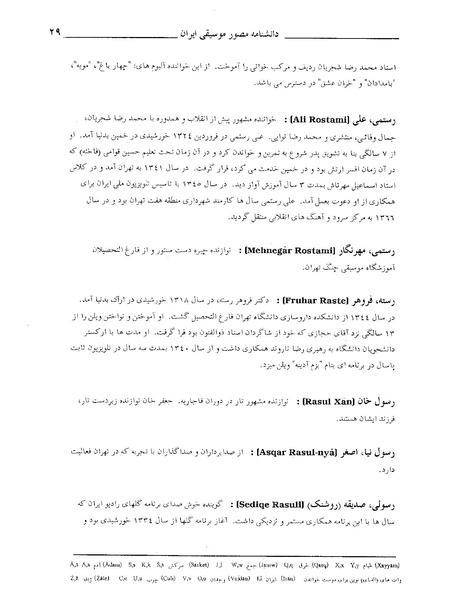 دانشنامه مصور موسیقی ایران ۲۹
استاد محمد رضا شجریان ردیف و مرکب خوانی را آموخت. از این خواننده آلبوم های: "چهار باغ"، "مویه"،
"بامدادان" و "خزان عشق" در دسترس می باشد.
رستمی، علی [Ali Rostami] : خواننده مشهور پیش از انقلاب و همدوره با محمد رضا شجریان،
جمال وفائی، منتشری و محمد رضا نوایی. علی رستمی در فروردین ۱۳۲۴ خورشیدی در خمین بدنیا آمد. او
از ۷ سالگی بنا به تشویق پدر شروع به تمرین و خواندن کرد و در آن زمان تحت تعلیم حسین قوامی (فاخته) که
در آن زمان افسر ارتش بود و در خمین خدمت می کرد، قرار گرفت. در سال ۱۳۴۱ به تهران آمد و در کلاس
استاد اسماعیل مهرتاش بمدت ۳ سال آموزش آواز دید. در سال ۱۳۴۵ با تاسیس تلویزیون ملی ایران برای
همکاری از او دعوت بعمل آمد. علی رستمی سال ها کارمند شهرداری منطقه هفت تهران بود و در سال
۱۳۶۶ به مرکز سرود و آهنگ های انقلابی منتقل گردید.
رستمی، مهرنگار [Mehnegâr Rostami] : نوازنده چیره دست سنتور و از فارغ التحصیلان
آموزشگاه موسیقی چنگ تهران.
رسته، فروهر [Fruhar Raste] : دکتر فروهر رسته، در سال ۱۳۱۸ خورشیدی در اراک بدنیا آمد.
در سال ۱۳۴۴ از دانشکده داروسازی دانشگاه تهران فارغ التحصیل گشت. او آموختن و نواختن ویلن را از
۱۳ سالگی نزد آقای حجازی که خود از شاگردان استاد ذوالفنون بود فرا گرفت. او مدت ها با ارکستر
دانشجویان دانشگاه به رهبری رضا ناروند همکاری داشت و از سال ۱۳۴۰ بمدت سه سال در تلویزیون ثابت
پاسال در برنامه ای بنام "بزم آدینه" ویلن میزد.
رسول خان [Rasul Xân] : نوازنده مشهور تار در دوران قاجاریه. جعفر خان نوازنده زبردست تار،
فرزند ایشان هستند.
رسول نیا، اصغر [Asqar Rasul-nyâ] : از صدابرداران و صداگذاران با تجربه که در تهران فعالیت
دارد.
رسولی، صدیقه (روشنک) [Sediqe Rasuli] : گوینده خوش صدای برنامه گلهای رادیو ایران که
سال ها با این برنامه همکاری مستمر و نزدیکی داشت. آغاز برنامه گلها از سال ۱۳۳۴ خورشیدی بود و